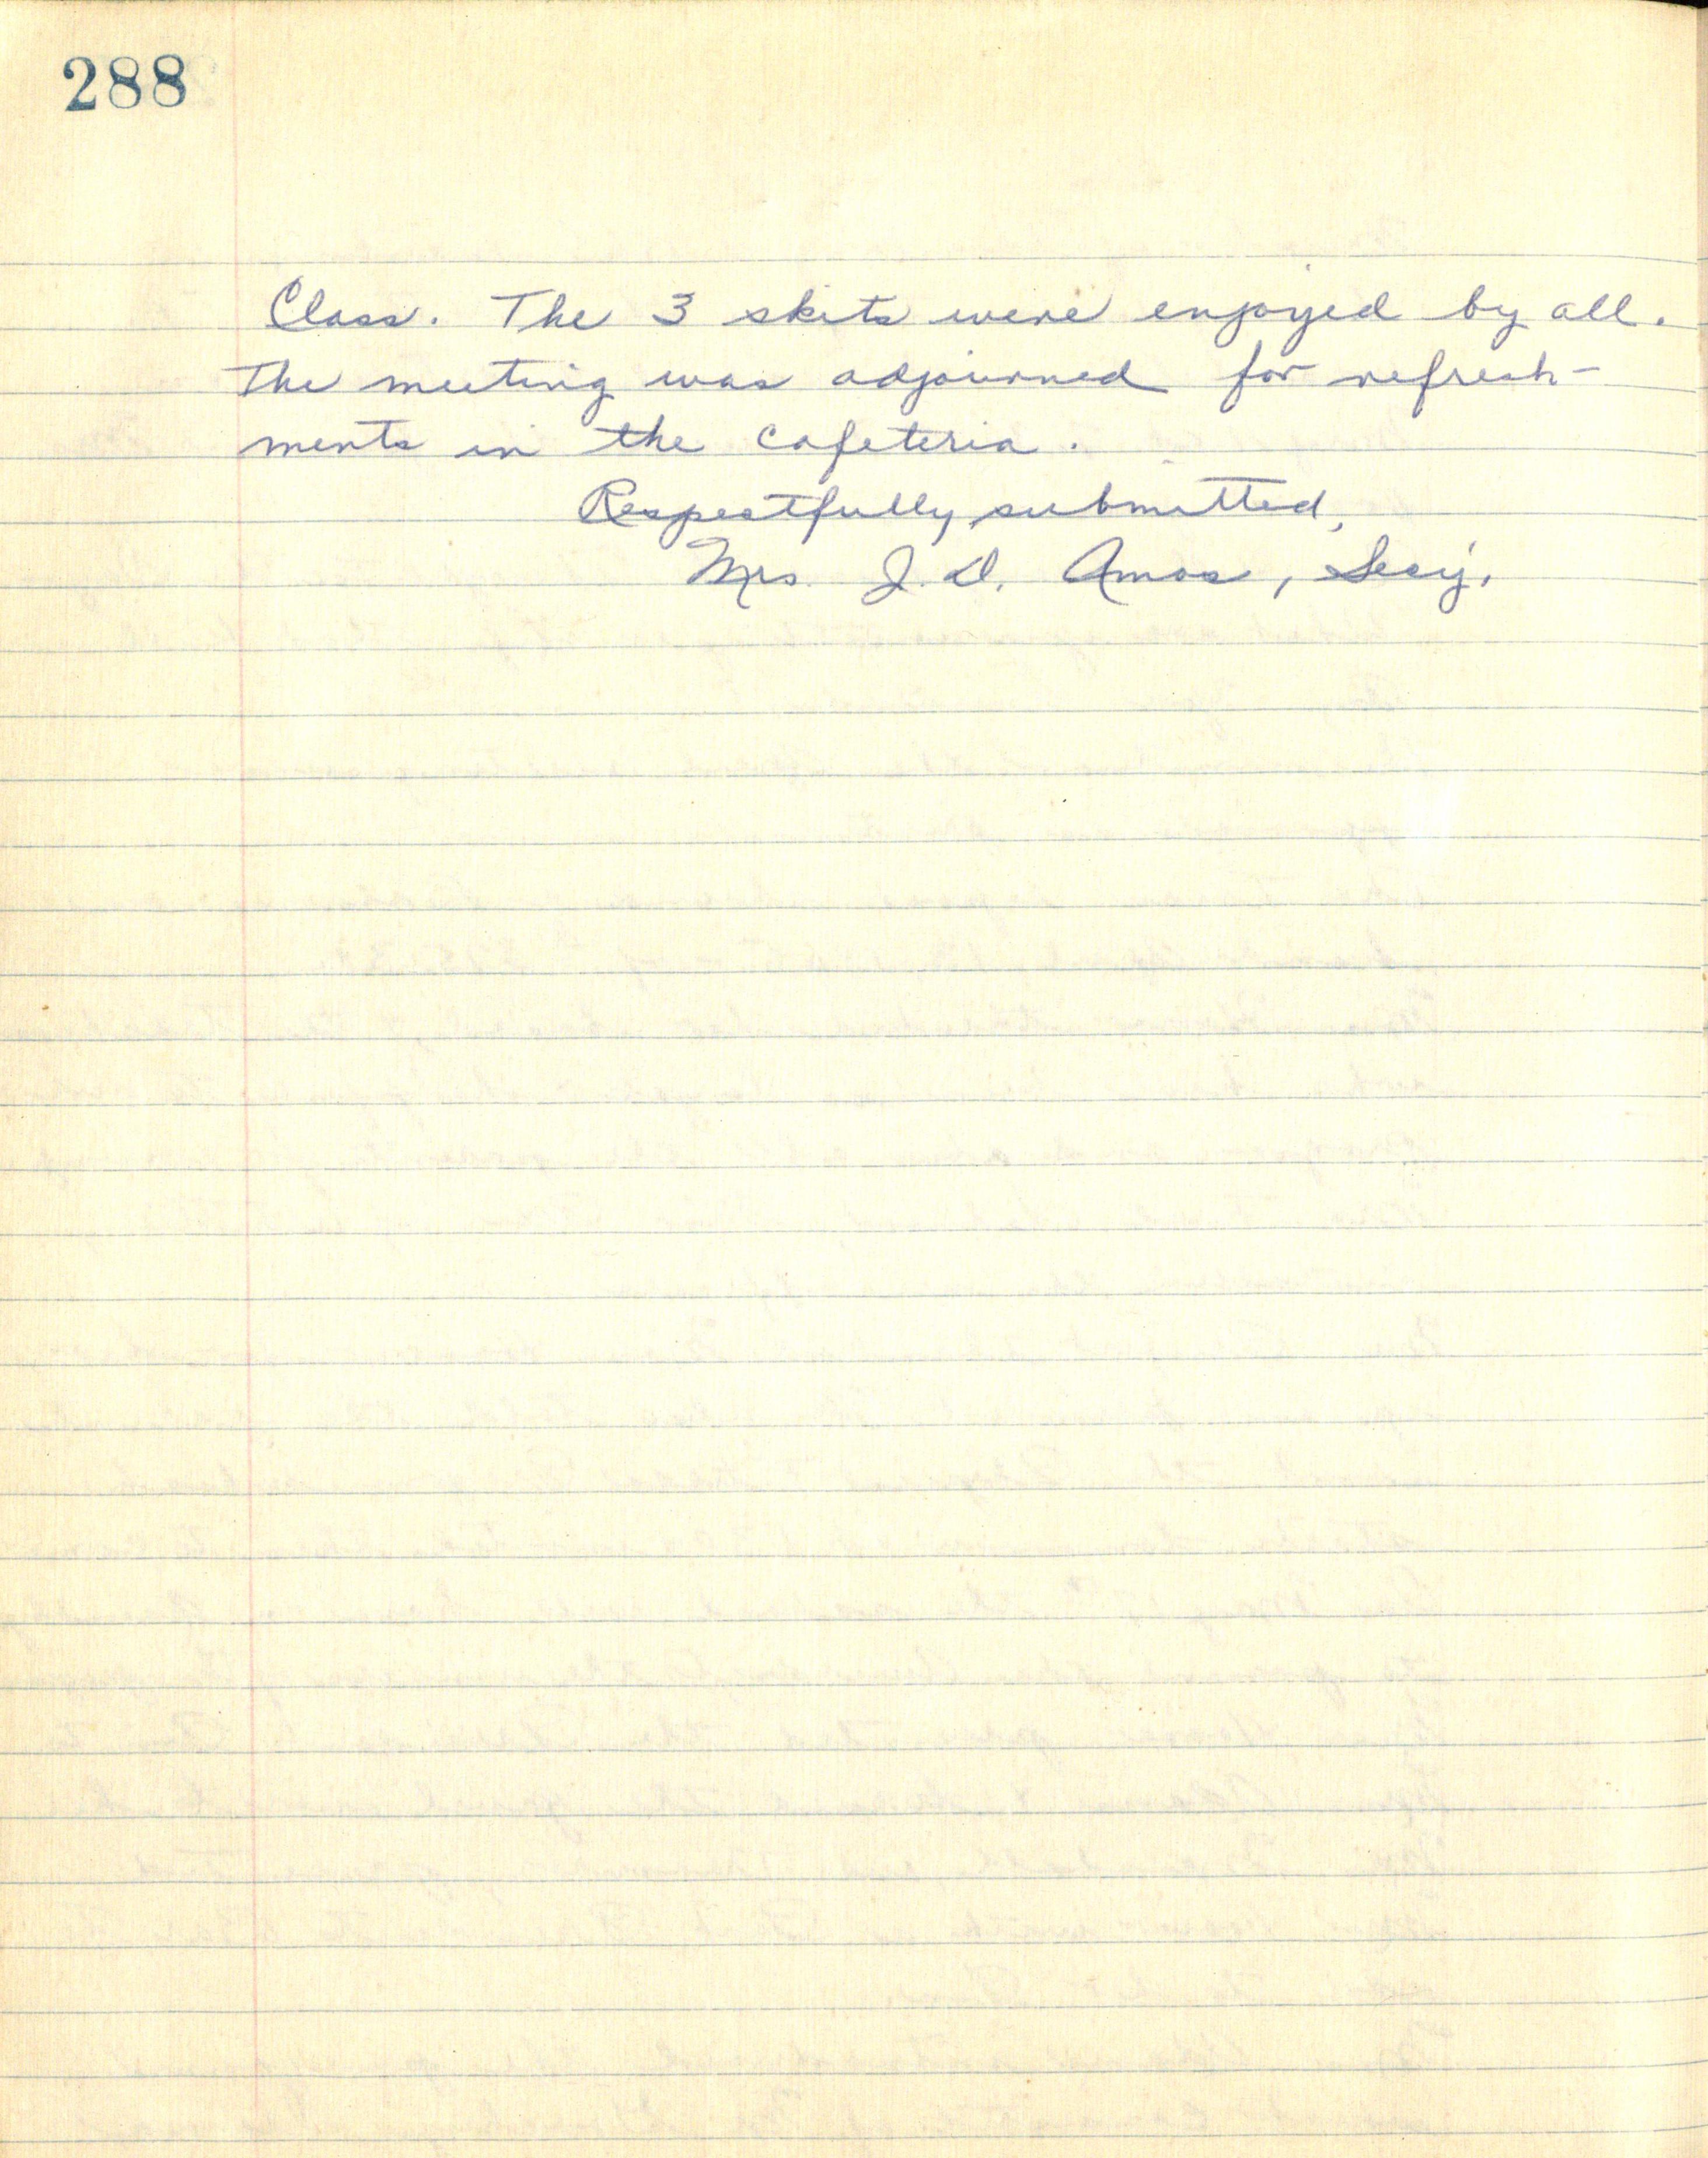 288
Class. The 3 skits were enjoyed by all.
The meeting was adjourned for refresh-
ments in the cafeteria.
Respectfully submitted,
Mrs. J. D. Amos, Secy.